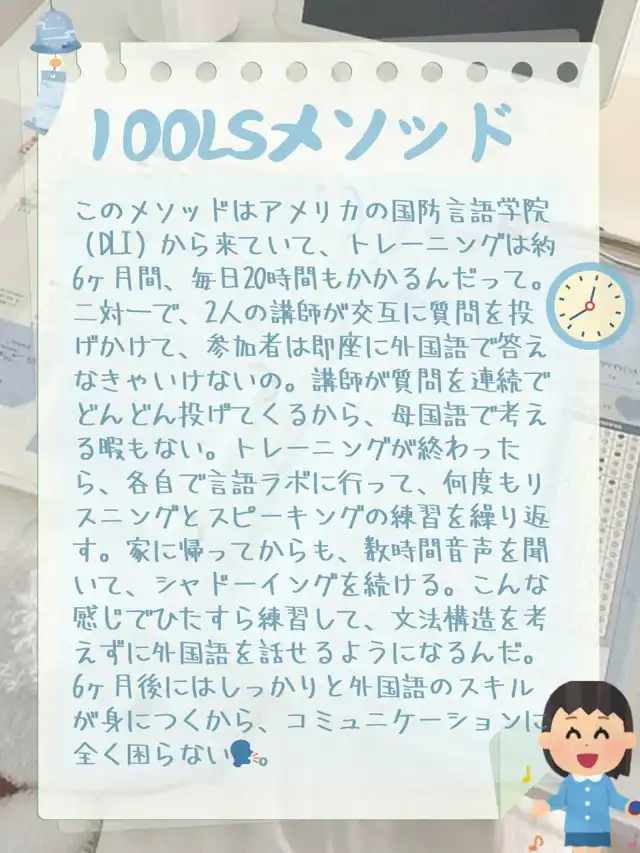 100LSメソッド
このメソッドはアメリカの国防言語学院
（DLI）から来ていて、トレーニングは約
6ヶ月間、毎日20時間もかかるんだって。
二対一で、2人の講師が交互に質問を投
げかけて、参加者は即座に外国語で答え
なきゃいけないの。講師が質問を連続で
どんどん投げてくるから、母国語で考え
る暇もない。トレーニングが終わった
ら、各自で言語ラボに行って、何度もリ
スニングとスピーキングの練習を繰り返
す。家に帰ってからも、数時間音声を聞
いて、シャドーイングを続ける。こんな
感じでひたすら練習して、文法構造を考
えずに外国語を話せるようになるんだ。
6ヶ月後にはしっかりと外国語のスキル
が身につくから、コミュニケーションに
全く困らない🗣。